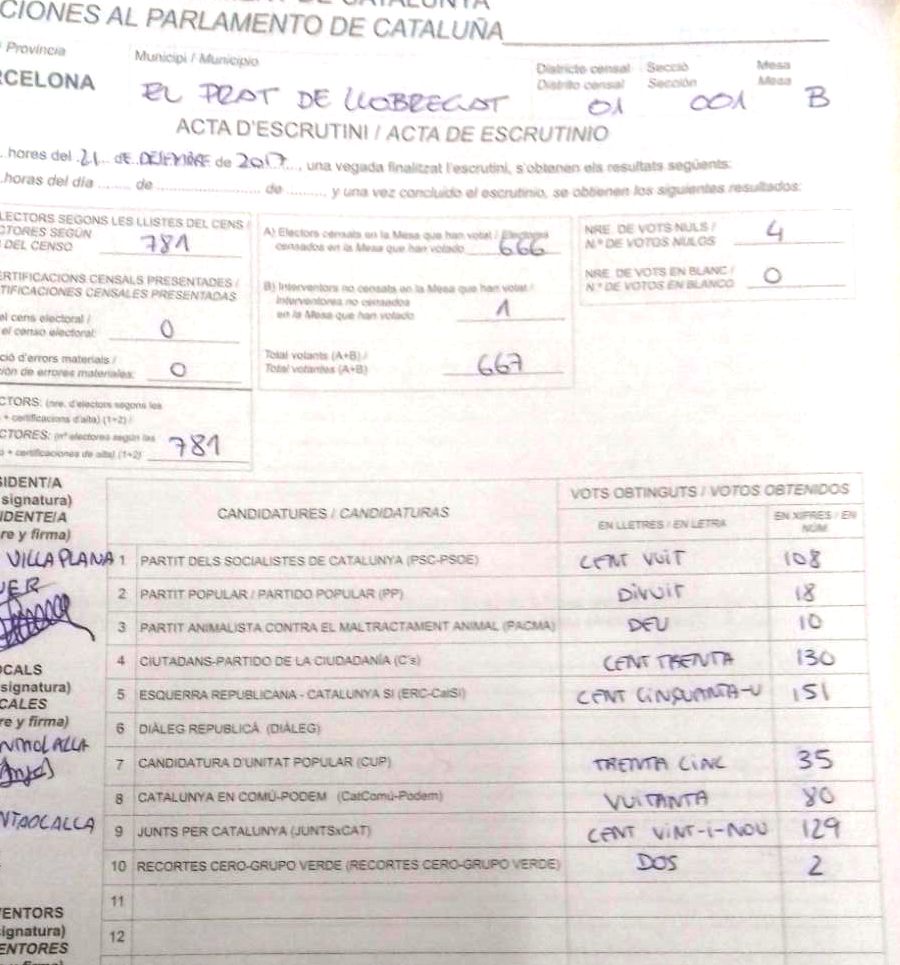 CIONES AL PARLAMENTO DE CATALUÑA
Provincia Municipi / Municipio Districte censal Secció Mesa
Distrito censal Sección Mesa
RCELONA EL PRAT DE LLOBREGAT 01 001 B
ACTA D'ESCRUTINI / ACTA DE ESCRUTINIO
hores del 21 de DESEMBRE de 2017, una vegada finalitzat l'escrutini, s'obtenen els resultats següents:
horas del día ........ de ........................ de ........ y una vez concluido el escrutinio, se obtienen los siguientes resultados:
LECTORS SEGONS LES LLISTES DEL CENS /
CTORES SEGÚN
DEL CENSO 781
ERTIFICACIONS CENSALS PRESENTADES /
TIFICACIONES CENSALES PRESENTADAS
el cens electoral /
el censo electoral: 0
ció d'errors materials /
ión de errores materiales: 0
CTORS: (nre. d'electors segons les
+ certificacions d'alta) (1+2) /
CTORES: (nº electores según las
+ certificaciones de alta) (1+2) 781
A) Electors censats en la Mesa que han votat / Electores
censados en la Mesa que han votado 666
B) Interventors no censats en la Mesa que han votat /
Interventores no censados
en la Mesa que han votado 1
Total votants (A+B) /
Total votantes (A+B) 667
NRE. DE VOTS NULS /
N.º DE VOTOS NULOS 4
NRE. DE VOTS EN BLANC /
N.º DE VOTOS EN BLANCO 0
SIDENT/A
signatura)
IDENTE/A
re y firma)
VILLAPLANA
OCALS
signatura)
CALES
re y firma)
VENTORS
signatura)
ENTORES
CANDIDATURES / CANDIDATURAS VOTS OBTINGUTS / VOTOS OBTENIDOS
EN LLETRES / EN LETRA EN XIFRES / EN NÚM
1 PARTIT DELS SOCIALISTES DE CATALUNYA (PSC-PSOE) CENT VUIT 108
2 PARTIT POPULAR / PARTIDO POPULAR (PP) DIVUIT 18
3 PARTIT ANIMALISTA CONTRA EL MALTRACTAMENT ANIMAL (PACMA) DEU 10
4 CIUTADANS-PARTIDO DE LA CIUDADANÍA (C's) CENT TRENTA 130
5 ESQUERRA REPUBLICANA - CATALUNYA SÍ (ERC-CatSí) CENT CINQUANTA-U 151
6 DIÀLEG REPUBLICÀ (DIÀLEG)
7 CANDIDATURA D'UNITAT POPULAR (CUP) TRENTA CINC 35
8 CATALUNYA EN COMÚ-PODEM (CatComú-Podem) VUITANTA 80
9 JUNTS PER CATALUNYA (JUNTSxCAT) CENT VINT-I-NOU 129
10 RECORTES CERO-GRUPO VERDE (RECORTES CERO-GRUPO VERDE) DOS 2
11
12